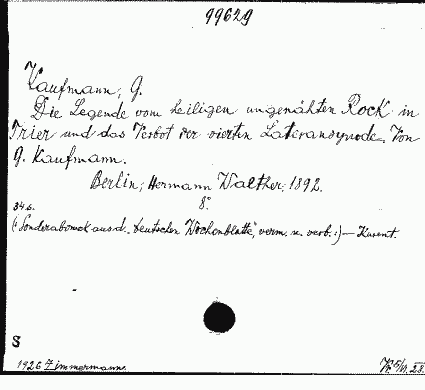 99629
Kaufmann, G.
Die Legende vom heiligen ungenähten Rock in
Trier und das Verbot der vierten Lateransynode. Von
G. Kaufmann.
Berlin, Hermann Walther, 1892.
8°
34 S.
(: Sonderabdruck aus d. „deutschen Wochenblatte", verm. u. verb. :) — Kurent.
S
1926 Zimmermann.
28.